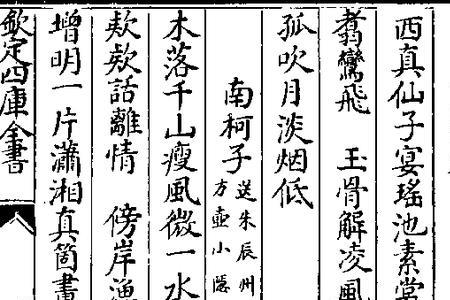 西真仙子宴瑶池素
翥鸞飛　玉骨解凌風
孤吹月淡烟低
南柯子
送朱辰州
方壺小隱
木落千山瘦風微一水
欵欵話離情　傍岸漁
增明一片瀟湘真箇畫
欽定四庫全書